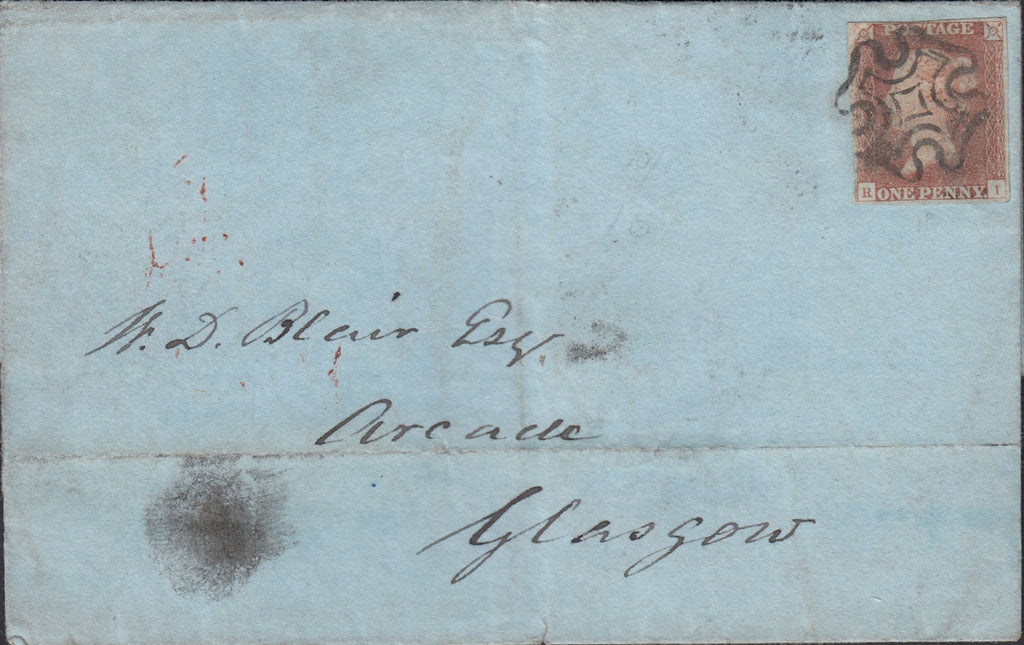 POSTAGE
R ONE PENNY I
W. D. Blair Esqr.
Arcade
Glasgow